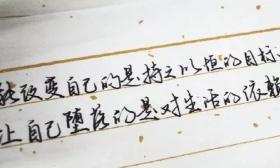 能改变自己的是持之以恒的目标
让自己堕落的是对生活的依赖